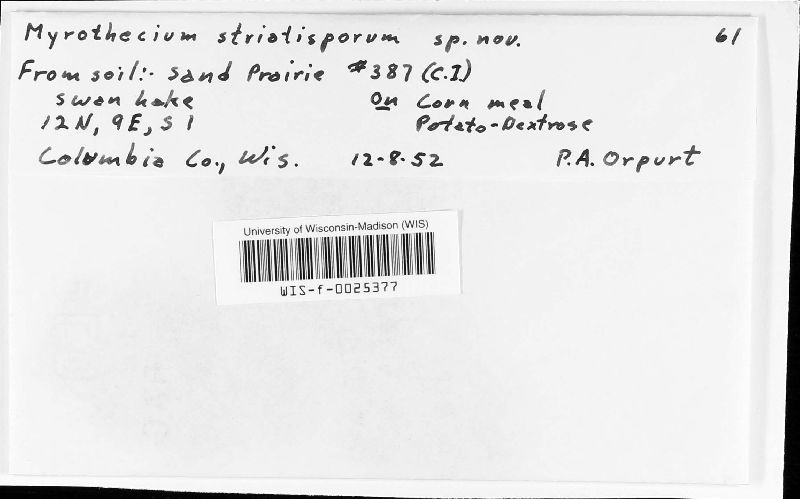 Myrothecium striatisporum sp. nov. 61
From soil:- Sand Prairie #387 (C.I)
Swan Lake On Corn meal
12N, 9E, S1 Potato-Dextrose
Columbia Co., Wis. 12-8-52 P.A. Orpurt
University of Wisconsin-Madison (WIS)
WIS-f-0025377